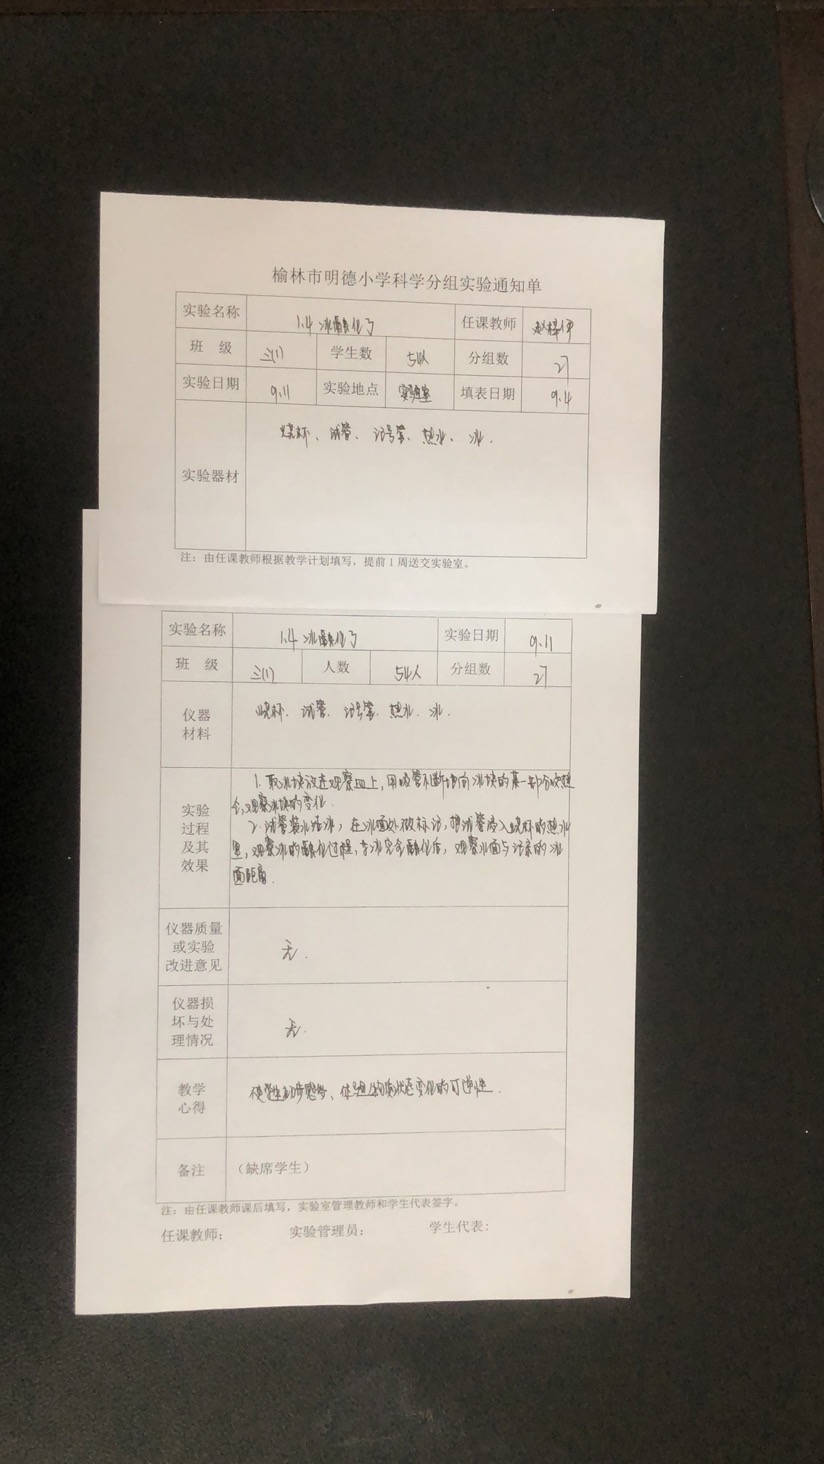 榆林市明德小学科学分组实验通知单
实验名称 1.4 冰融化了 任课教师
班 级 三(1) 学生数 54人 分组数 27
实验日期 9.11 实验地点 实验室 填表日期 9.4
实验器材 烧杯、试管、记号笔、热水、冰.
注：由任课教师根据教学计划填写，提前1周送交实验室。
实验名称 1.4 冰融化了 实验日期 9.11
班 级 三(1) 人数 54人 分组数 27
仪器
材料
烧杯、试管、记号笔、热水、冰.
实验
过程
及其
效果
1. 取冰块放在观察皿上，用吸管不断地向冰块的某一部分吹热
气，观察冰块的变化.
2. 试管装水结冰，在冰面处做标记，将试管浸入烧杯的热水
里，观察冰的融化过程，等冰完全融化后，观察水面与记录的冰
面距离.
仪器质量
或实验
改进意见
无.
仪器损
坏与处
理情况
无.
教学
心得
使学生初步感悟、体验物质状态变化的可逆性.
备注 （缺席学生）
注：由任课教师课后填写，实验室管理教师和学生代表签字。
任课教师： 实验管理员： 学生代表：